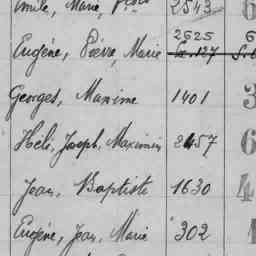 Emile, Marie, 2543 6
2625 6
Eugène, Pierre, Marie
Georges, Maxime 1401 3
Héli, Joseph, Maximin 2457 6
Jean, Baptiste 1630 4
Eugène, Jean, Marie 302 1